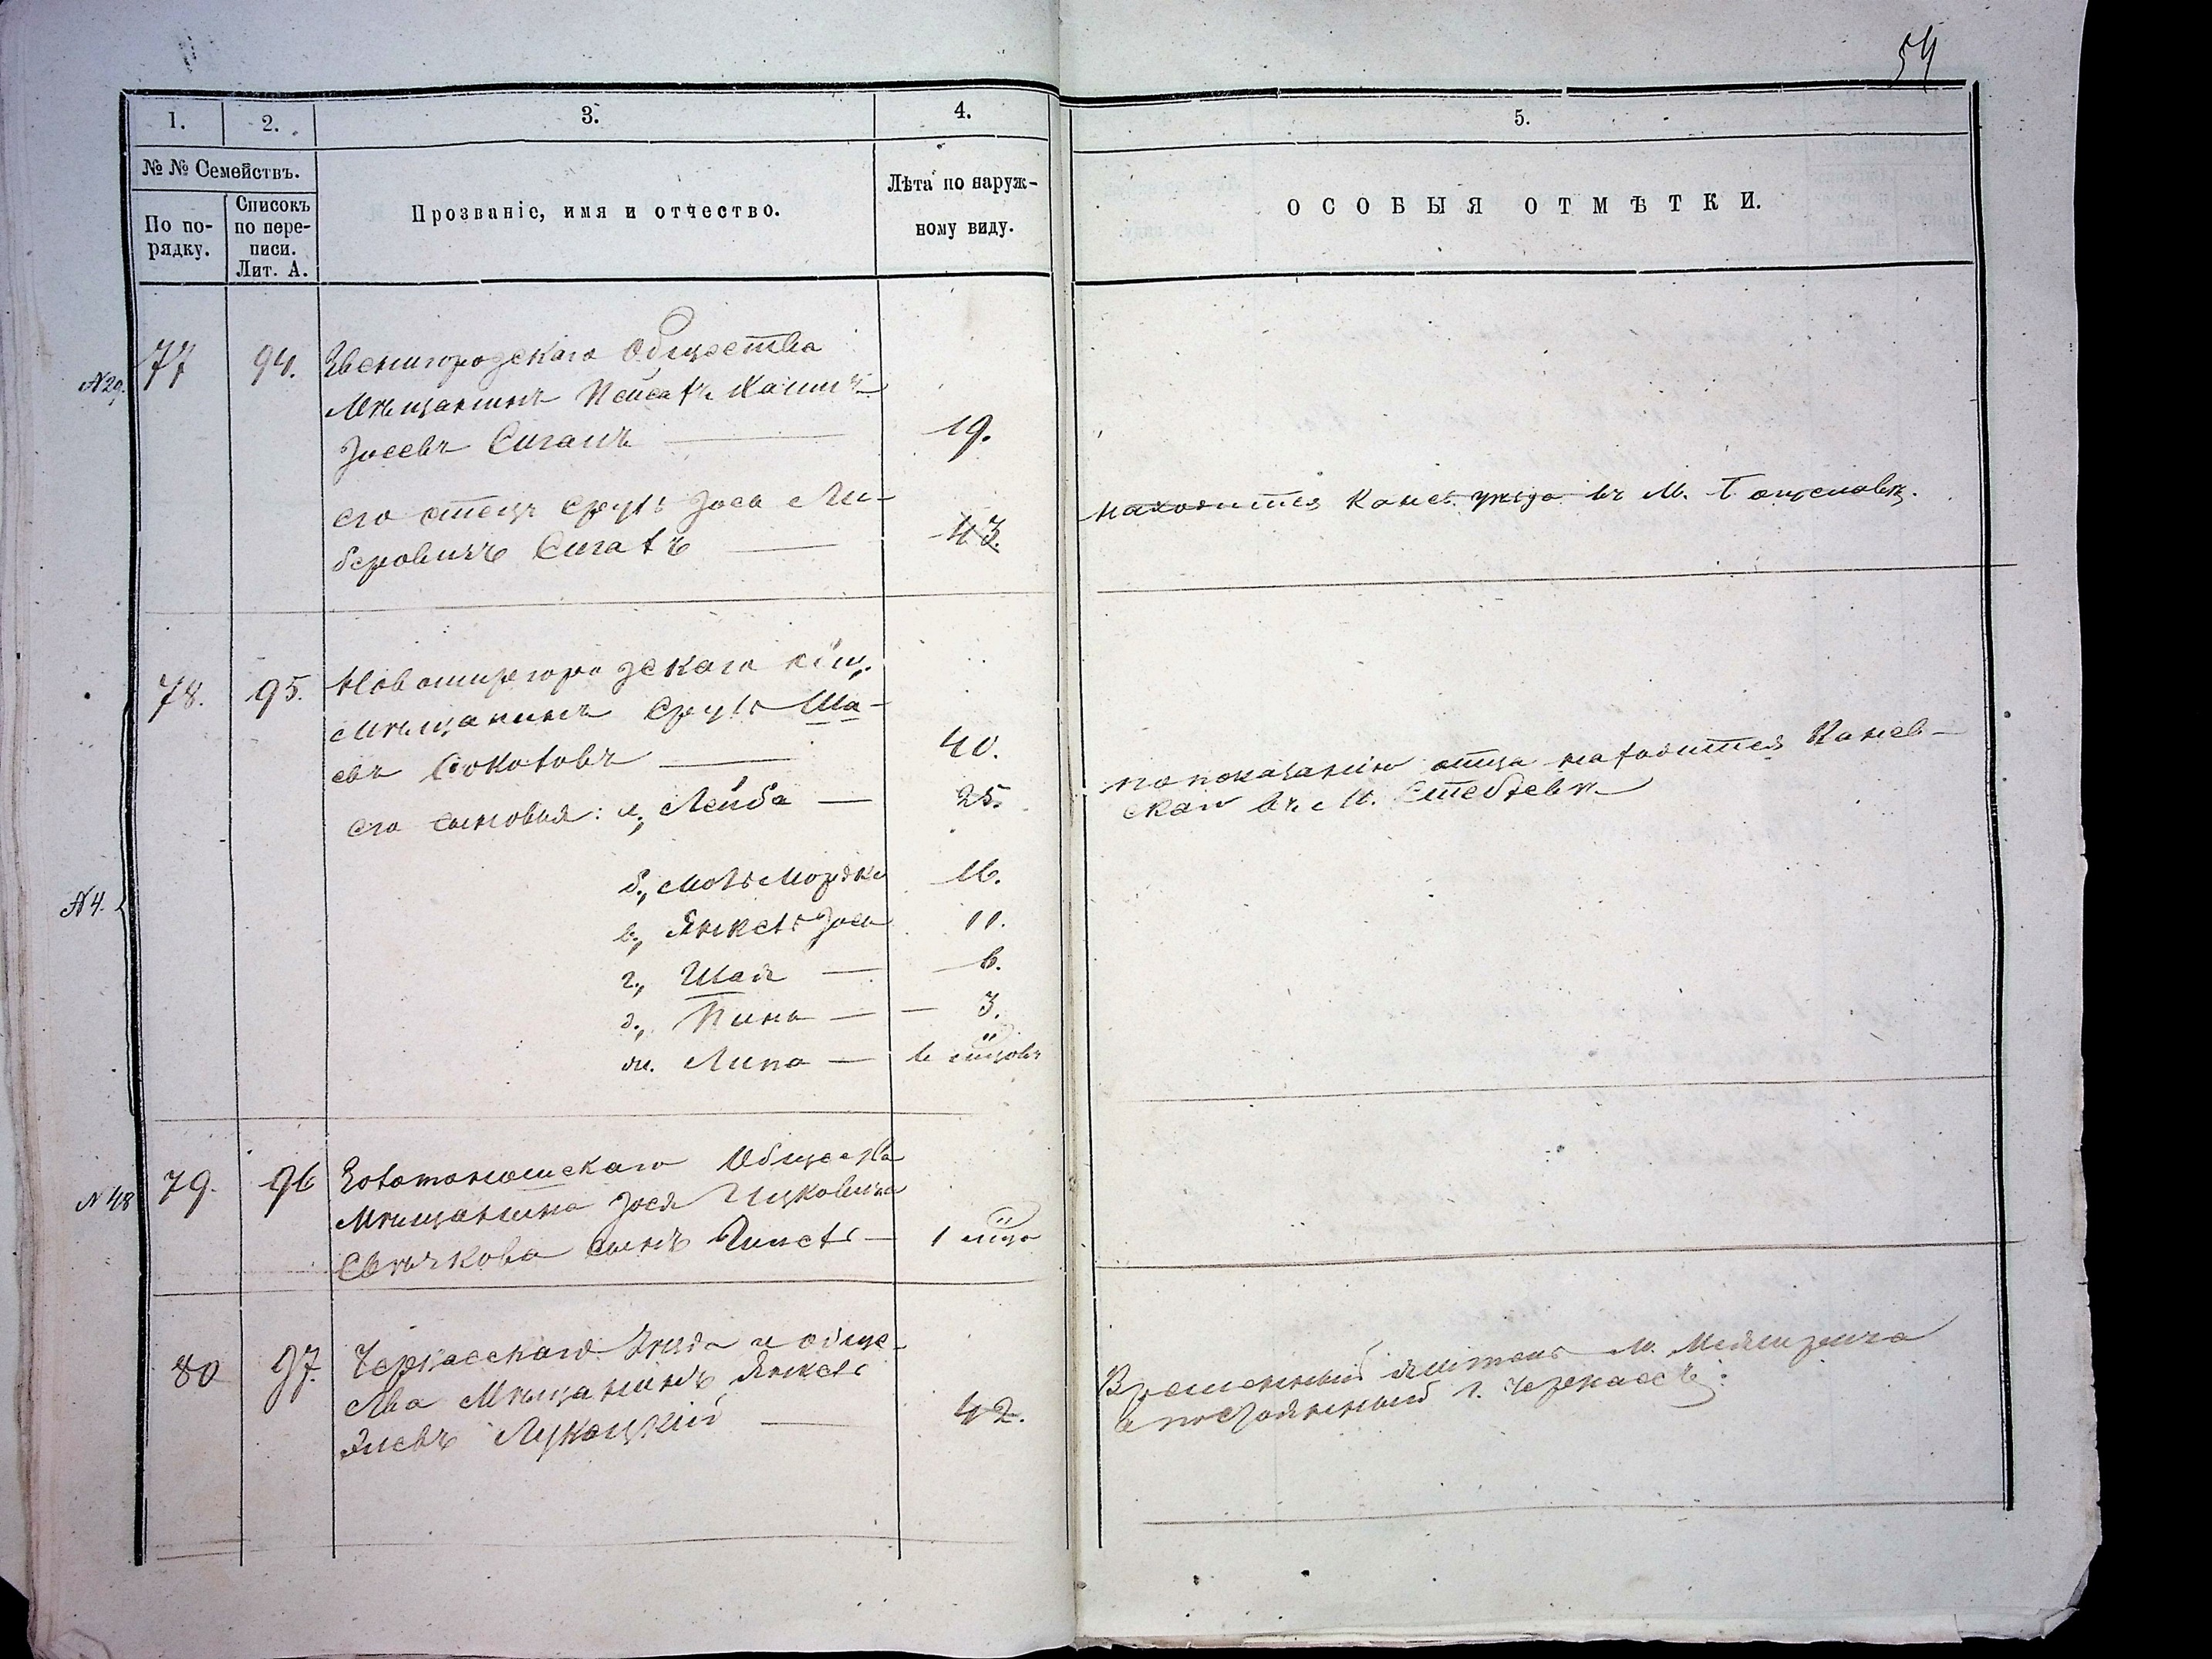 54
1.
2.
3.
4.
5.
№ № Семействъ.
По по-
рядку.
Списокъ
по пере-
писи.
Лит. А.
Прозваніе, имя и отчество.
Лѣта по наруж-
ному виду.
ОСОБЫЯ ОТМѢТКИ.
№ 29.
77
94.
Звенигородскаго Общества
Мѣщанинъ Пейсахъ
Іосевъ
19.
его отецъ Сруль Іось Ли-
беровичъ
43.
находится Канев. уѣзда въ М.
78.
95.
Новомиргородскаго общ.
Мѣщанинъ Сруль Ша-
евъ Соколовъ
40.
№ 4.
его сыновья: а., Лейба
25.
по показанію отца находится Канев-
скаго въ М. Стеблевѣ
б., Мотьмордко
16.
в., Янкель Іось
11.
г., Шая
6.
д., Пина
3.
Липа
6 мѣцовъ
№ 48
79.
96
Золотоношскаго Общества
Мѣщанина Іося Ицковича
Свѣчкова сынъ
1 мѣца
80
97.
Черкасскаго Уѣзда и обще-
ства Мѣщанинъ Янкель
Элевъ Лукацкій
42.
Временный житель м. Межирича
а постоянный г. Черкассъ.